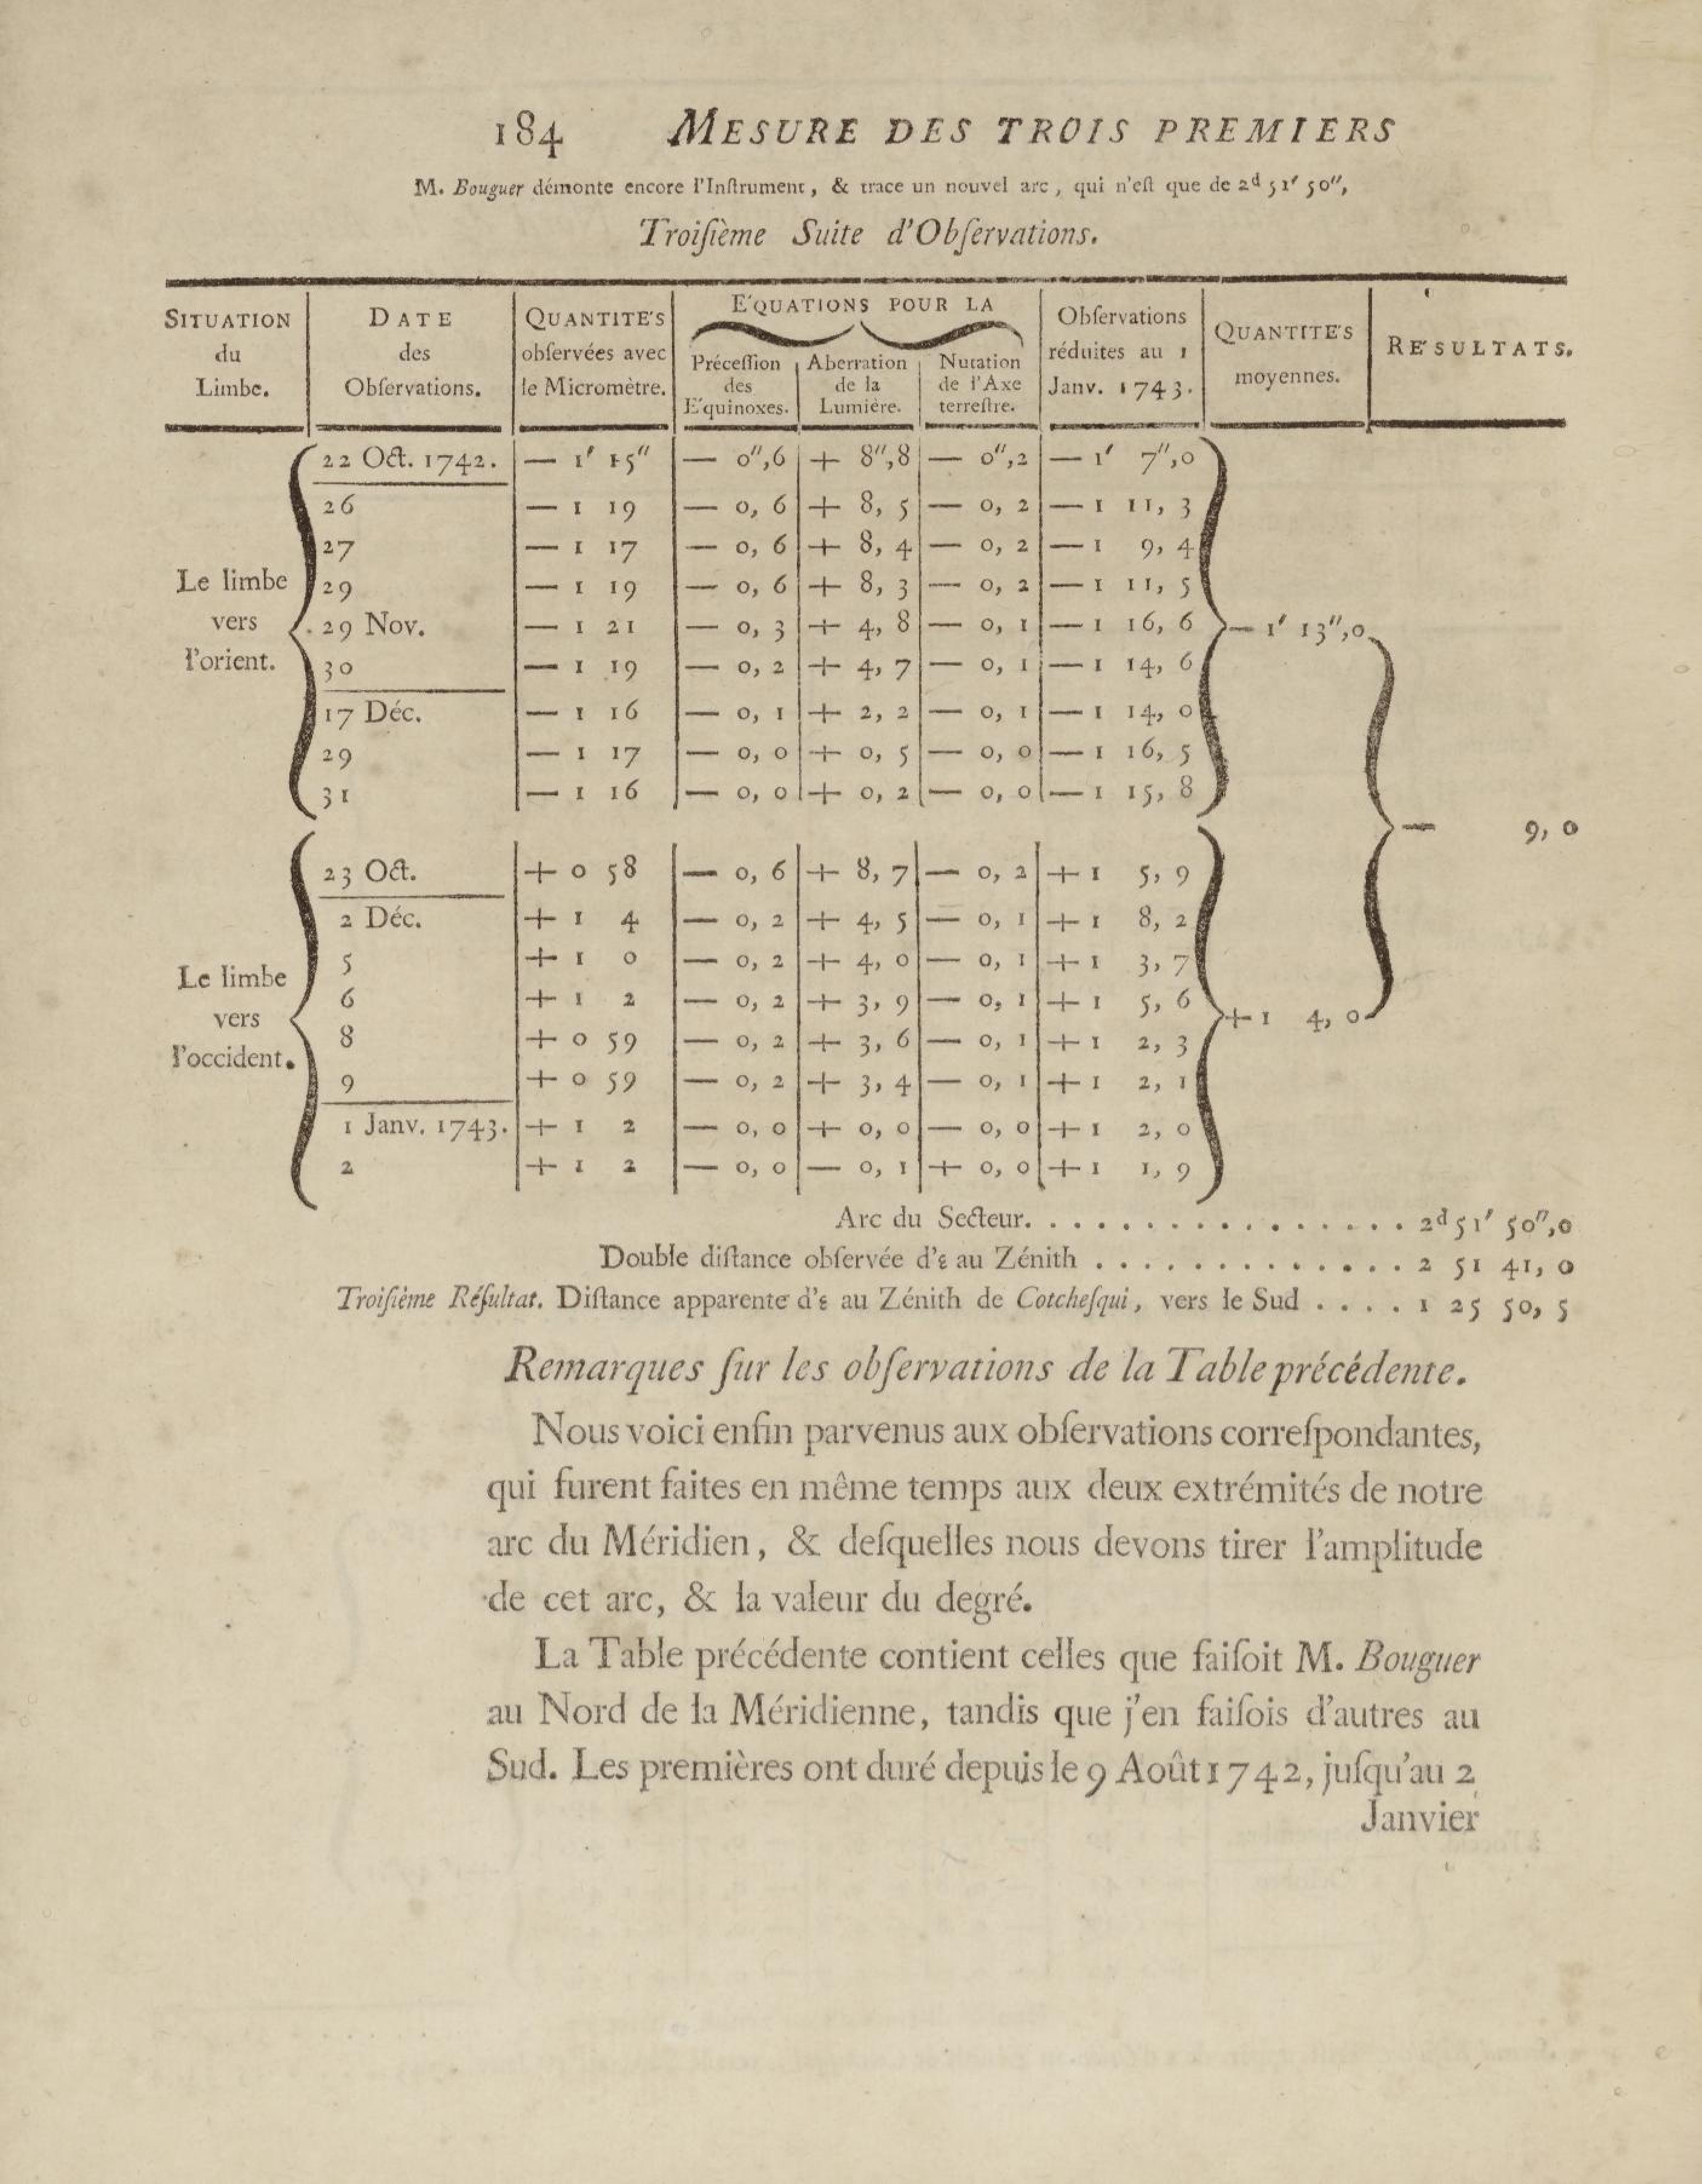 184 MESURE DES TROIS PREMIERS
M. Bouguer démonte encore l'Inſtrument, & trace un nouvel arc, qui n'eſt que de 2ᵈ 51′ 50″,
Troiſième Suite d'Obſervations.
SITUATION du Limbe. | DATE des Obſervations. | QUANTITE'S obſervées avec le Micromètre. | E'QUATIONS POUR LA | Obſervations réduites au 1 Janv. 1743. | QUANTITE'S moyennes. | RE'SULTATS.
Préceſſion des E'quinoxes. | Aberration de la Lumière. | Nutation de l'Axe terreſtre.
22 Oct. 1742. | — 1′ 15″ | — 0″,6 | + 8″,8 | — 0″,2 | — 1′ 7″,0
26 | — 1 19 | — 0, 6 | + 8, 5 | — 0, 2 | — 1 11, 3
27 | — 1 17 | — 0, 6 | + 8, 4 | — 0, 2 | — 1 9, 4
Le limbe vers l'orient. | 29 | — 1 19 | — 0, 6 | + 8, 3 | — 0, 2 | — 1 11, 5
29 Nov. | — 1 21 | — 0, 3 | + 4, 8 | — 0, 1 | — 1 16, 6 | — 1′ 13″,0
30 | — 1 19 | — 0, 2 | + 4, 7 | — 0, 1 | — 1 14, 6
17 Déc. | — 1 16 | — 0, 1 | + 2, 2 | — 0, 1 | — 1 14, 0
29 | — 1 17 | — 0, 0 | + 0, 5 | — 0, 0 | — 1 16, 5
31 | — 1 16 | — 0, 0 | + 0, 2 | — 0, 0 | — 1 15, 8
— 9, 0
23 Oct. | + 0 58 | — 0, 6 | + 8, 7 | — 0, 2 | + 1 5, 9
2 Déc. | + 1 4 | — 0, 2 | + 4, 5 | — 0, 1 | + 1 8, 2
5 | + 1 0 | — 0, 2 | + 4, 0 | — 0, 1 | + 1 3, 7
Le limbe vers l'occident. | 6 | + 1 2 | — 0, 2 | + 3, 9 | — 0, 1 | + 1 5, 6 | + 1 4, 0
8 | + 0 59 | — 0, 2 | + 3, 6 | — 0, 1 | + 1 2, 3
9 | + 0 59 | — 0, 2 | + 3, 4 | — 0, 1 | + 1 2, 1
1 Janv. 1743. | + 1 2 | — 0, 0 | + 0, 0 | — 0, 0 | + 1 2, 0
2 | + 1 2 | — 0, 0 | — 0, 1 | + 0, 0 | + 1 1, 9
Arc du Secteur. . . . . . . . . . . . . . . . . 2ᵈ 51′ 50″,0
Double diſtance obſervée d'ε au Zénith . . . . . . . . . . . . . 2 51 41, 0
Troiſième Réſultat. Diſtance apparente d'ε au Zénith de Cotcheſqui, vers le Sud . . . . 1 25 50, 5
Remarques ſur les obſervations de la Table précédente.
Nous voici enfin parvenus aux obſervations correſpondantes,
qui furent faites en même temps aux deux extrémités de notre
arc du Méridien, & deſquelles nous devons tirer l'amplitude
de cet arc, & la valeur du degré.
La Table précédente contient celles que faiſoit M. Bouguer
au Nord de la Méridienne, tandis que j'en faiſois d'autres au
Sud. Les premières ont duré depuis le 9 Août 1742, juſqu'au 2
Janvier